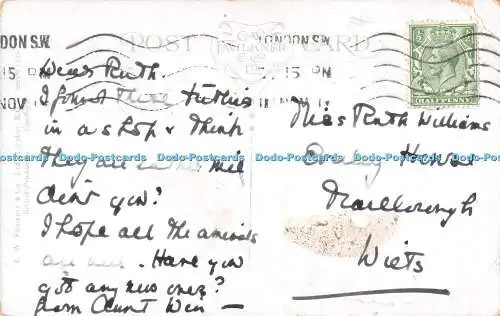 LONDON S.W.
POST CARD
FAULKNER
5 PM
15 PM
NOV
HALFPENNY
Dear Ruth.
I found these
in a shop & think
they are rather nice
don't you?
I hope all the animals
are well. Have you
got any new ones?
from Aunt Win —
Miss Ruth Williams
House
Marlborough
Wilts
Dodo-Postcards Dodo-Postcards Dodo-Postcards Dodo-Postcards Dodo-Postcards Dodo-Postcards